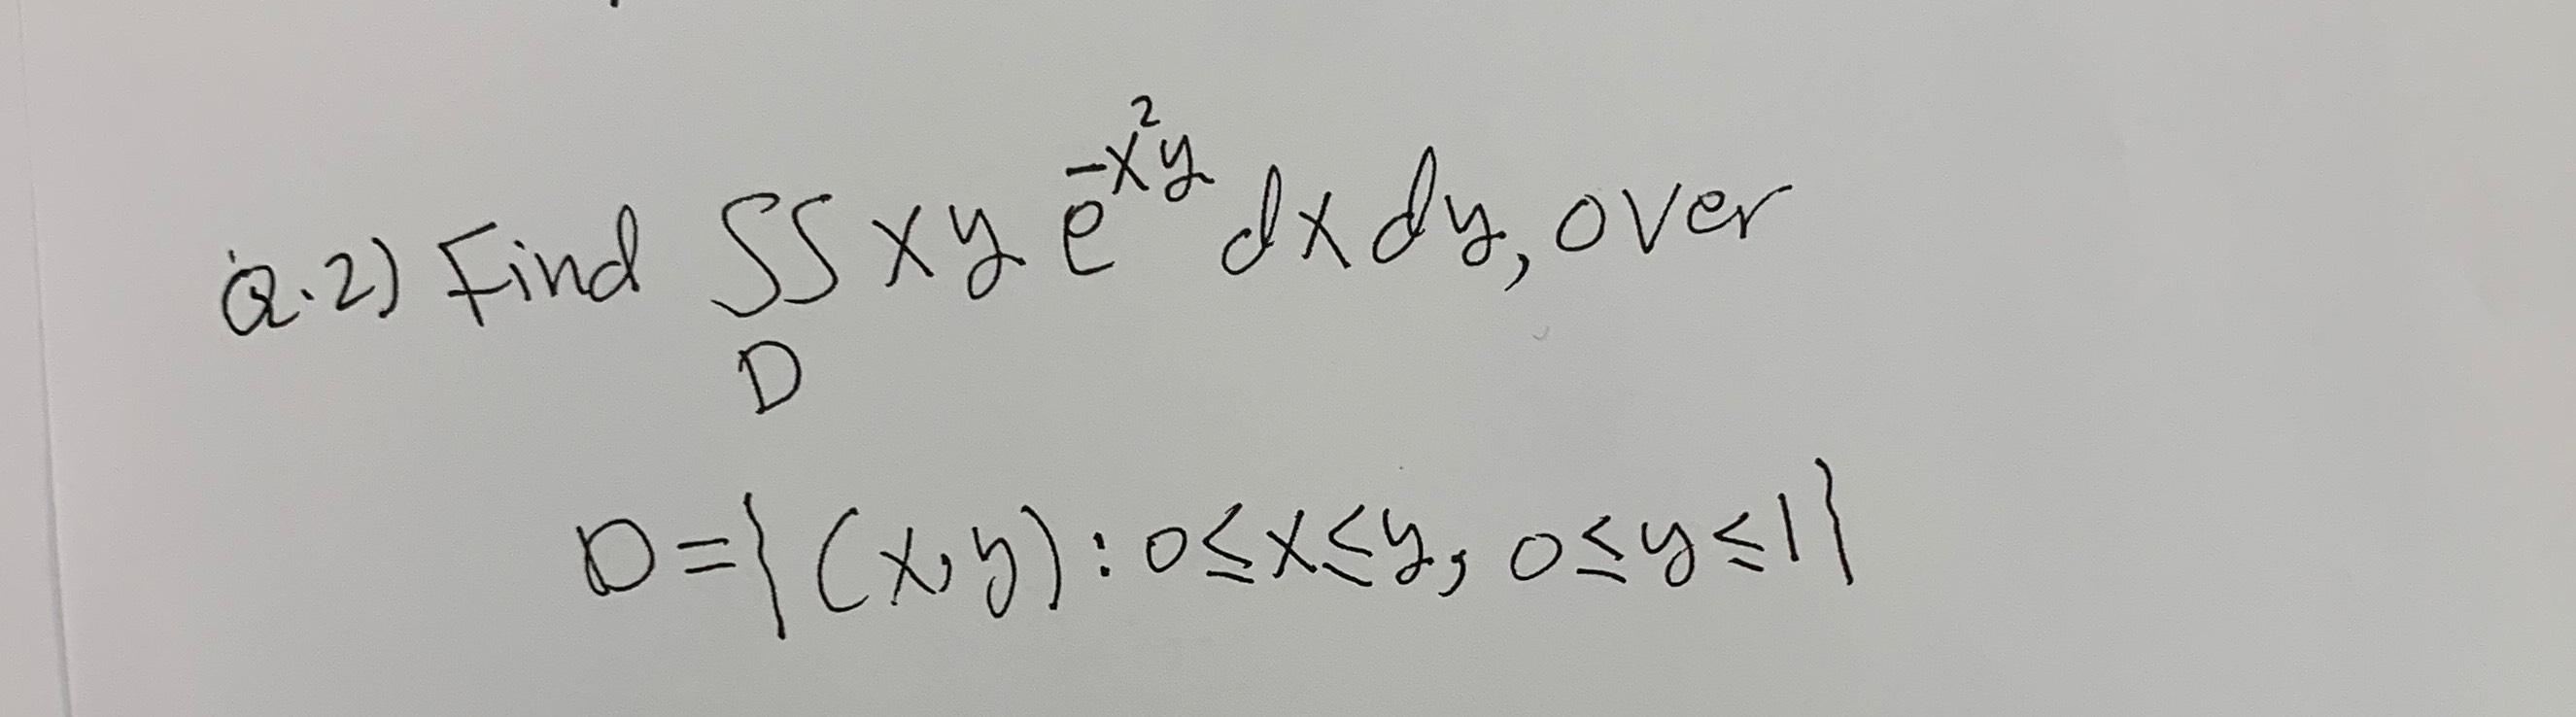 Q.2) Find ∬ x y e^{-x²y} dx dy, over
D
D = { (x, y) : 0 ≤ x ≤ y, 0 ≤ y ≤ 1 }